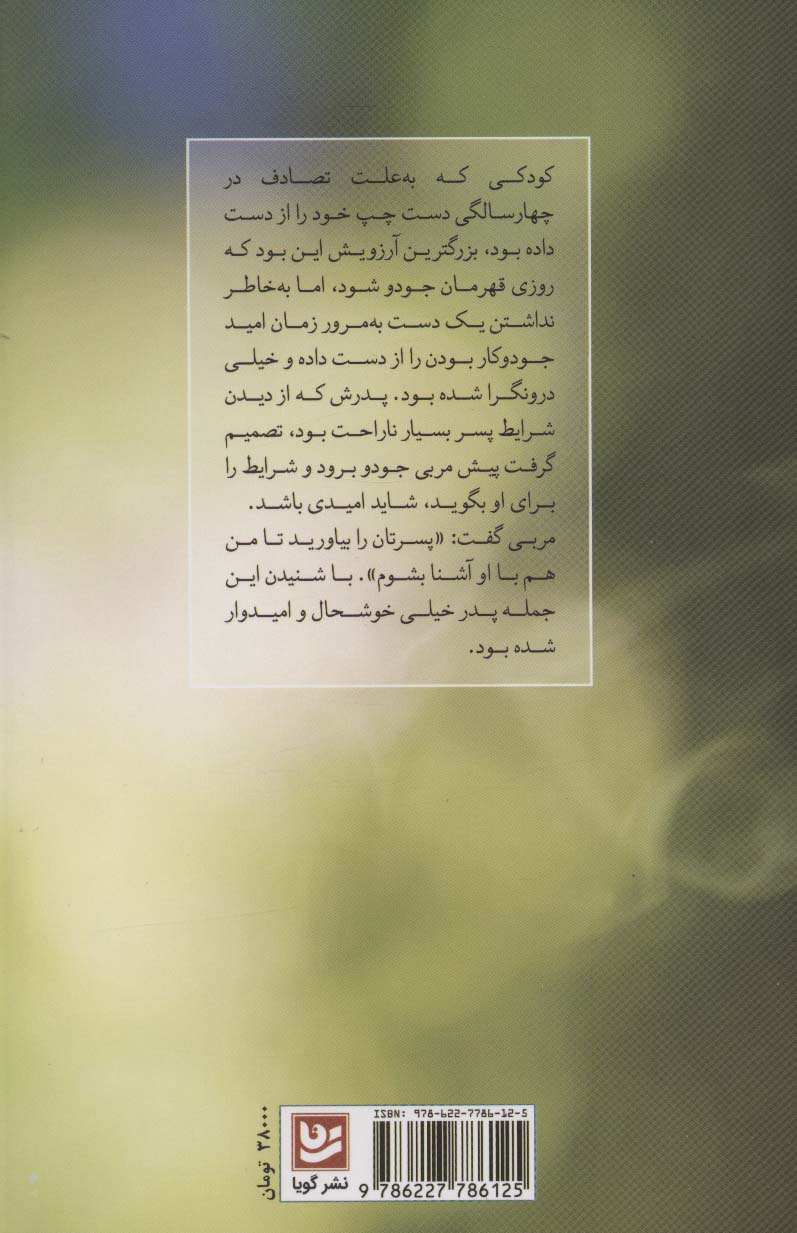 کودکی که به‌علت تصادف در
چهارسالگی دست چپ خود را از دست
داده بود، بزرگترین آرزویش این بود که
روزی قهرمان جودو شود، اما به‌خاطر
نداشتن یک دست به‌مرور زمان امید
جودوکار بودن را از دست داده و خیلی
درونگرا شده بود. پدرش که از دیدن
شرایط پسر بسیار ناراحت بود، تصمیم
گرفت پیش مربی جودو برود و شرایط را
برای او بگوید، شاید امیدی باشد.
مربی گفت: «پسرتان را بیاورید تا من
هم با او آشنا بشوم». با شنیدن این
جمله پدر خیلی خوشحال و امیدوار
شده بود.
۳۸۰۰۰ تومان
نشر گویا
ISBN: 978-622-7786-12-5
9 786227 786125